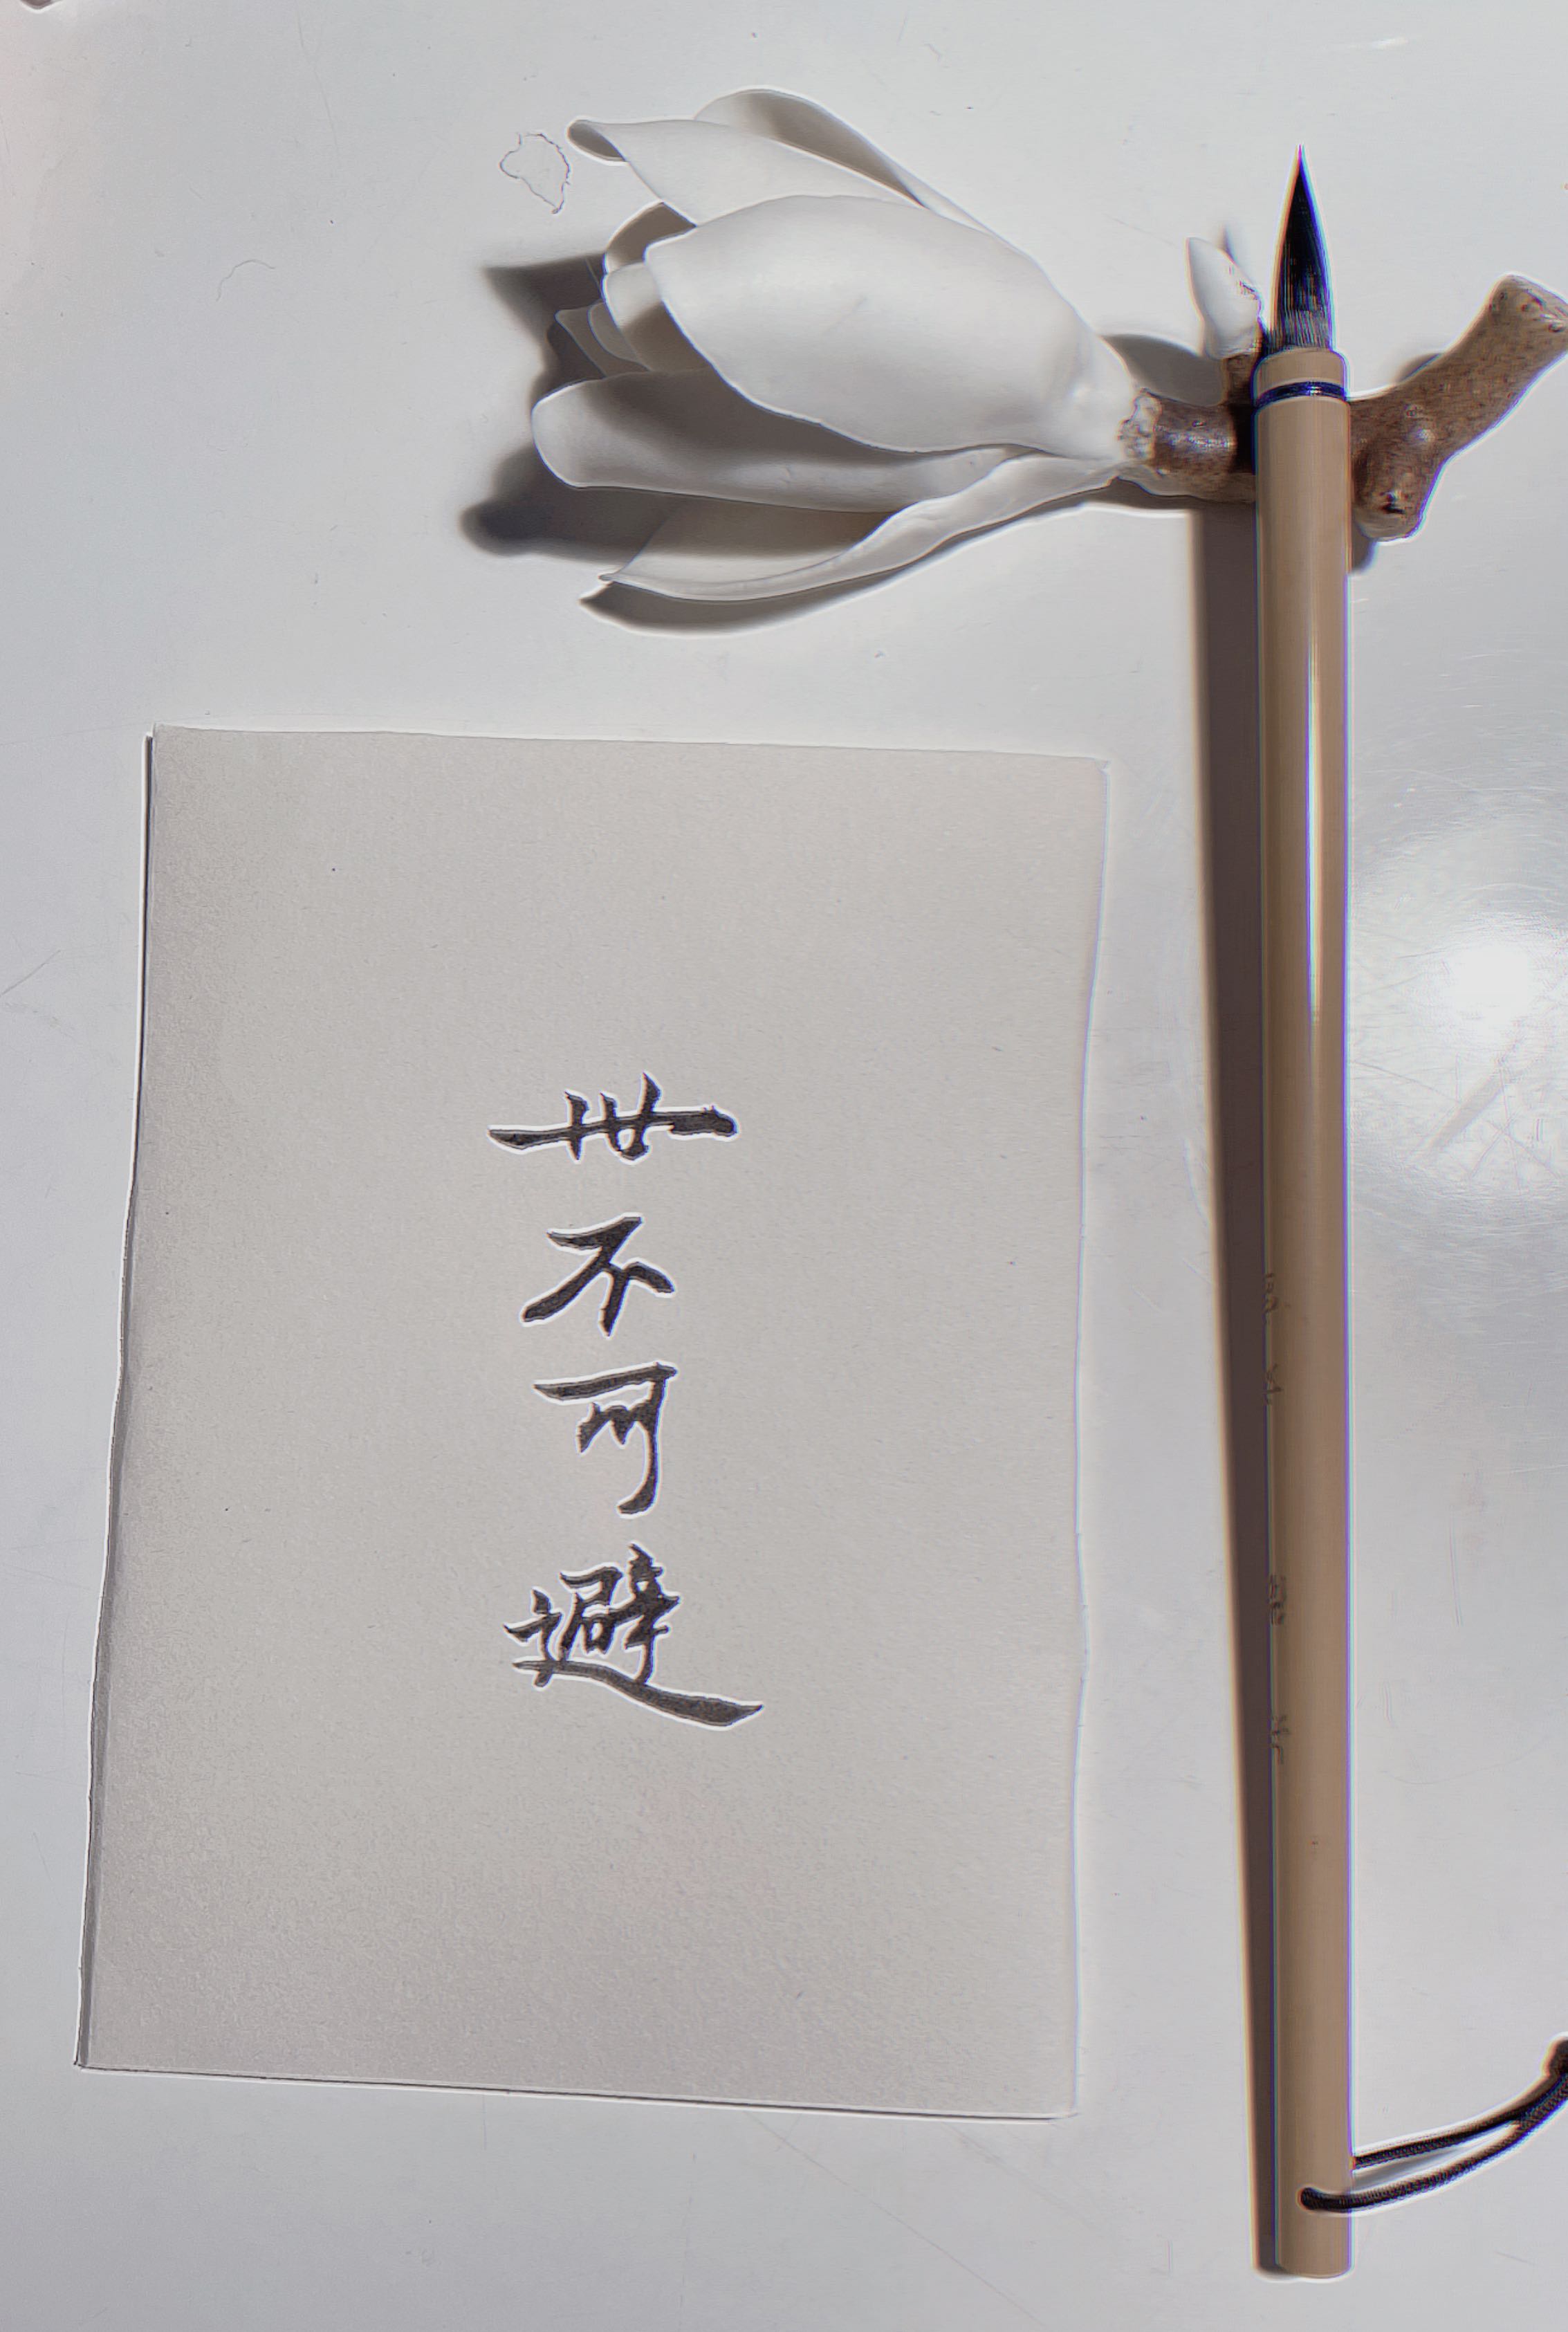 世不可避